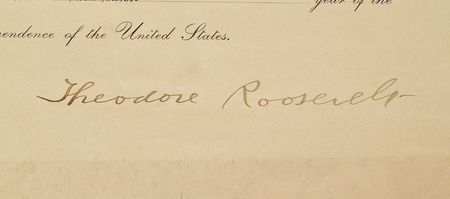 year of the
endence of the United States.
Theodore Roosevelt